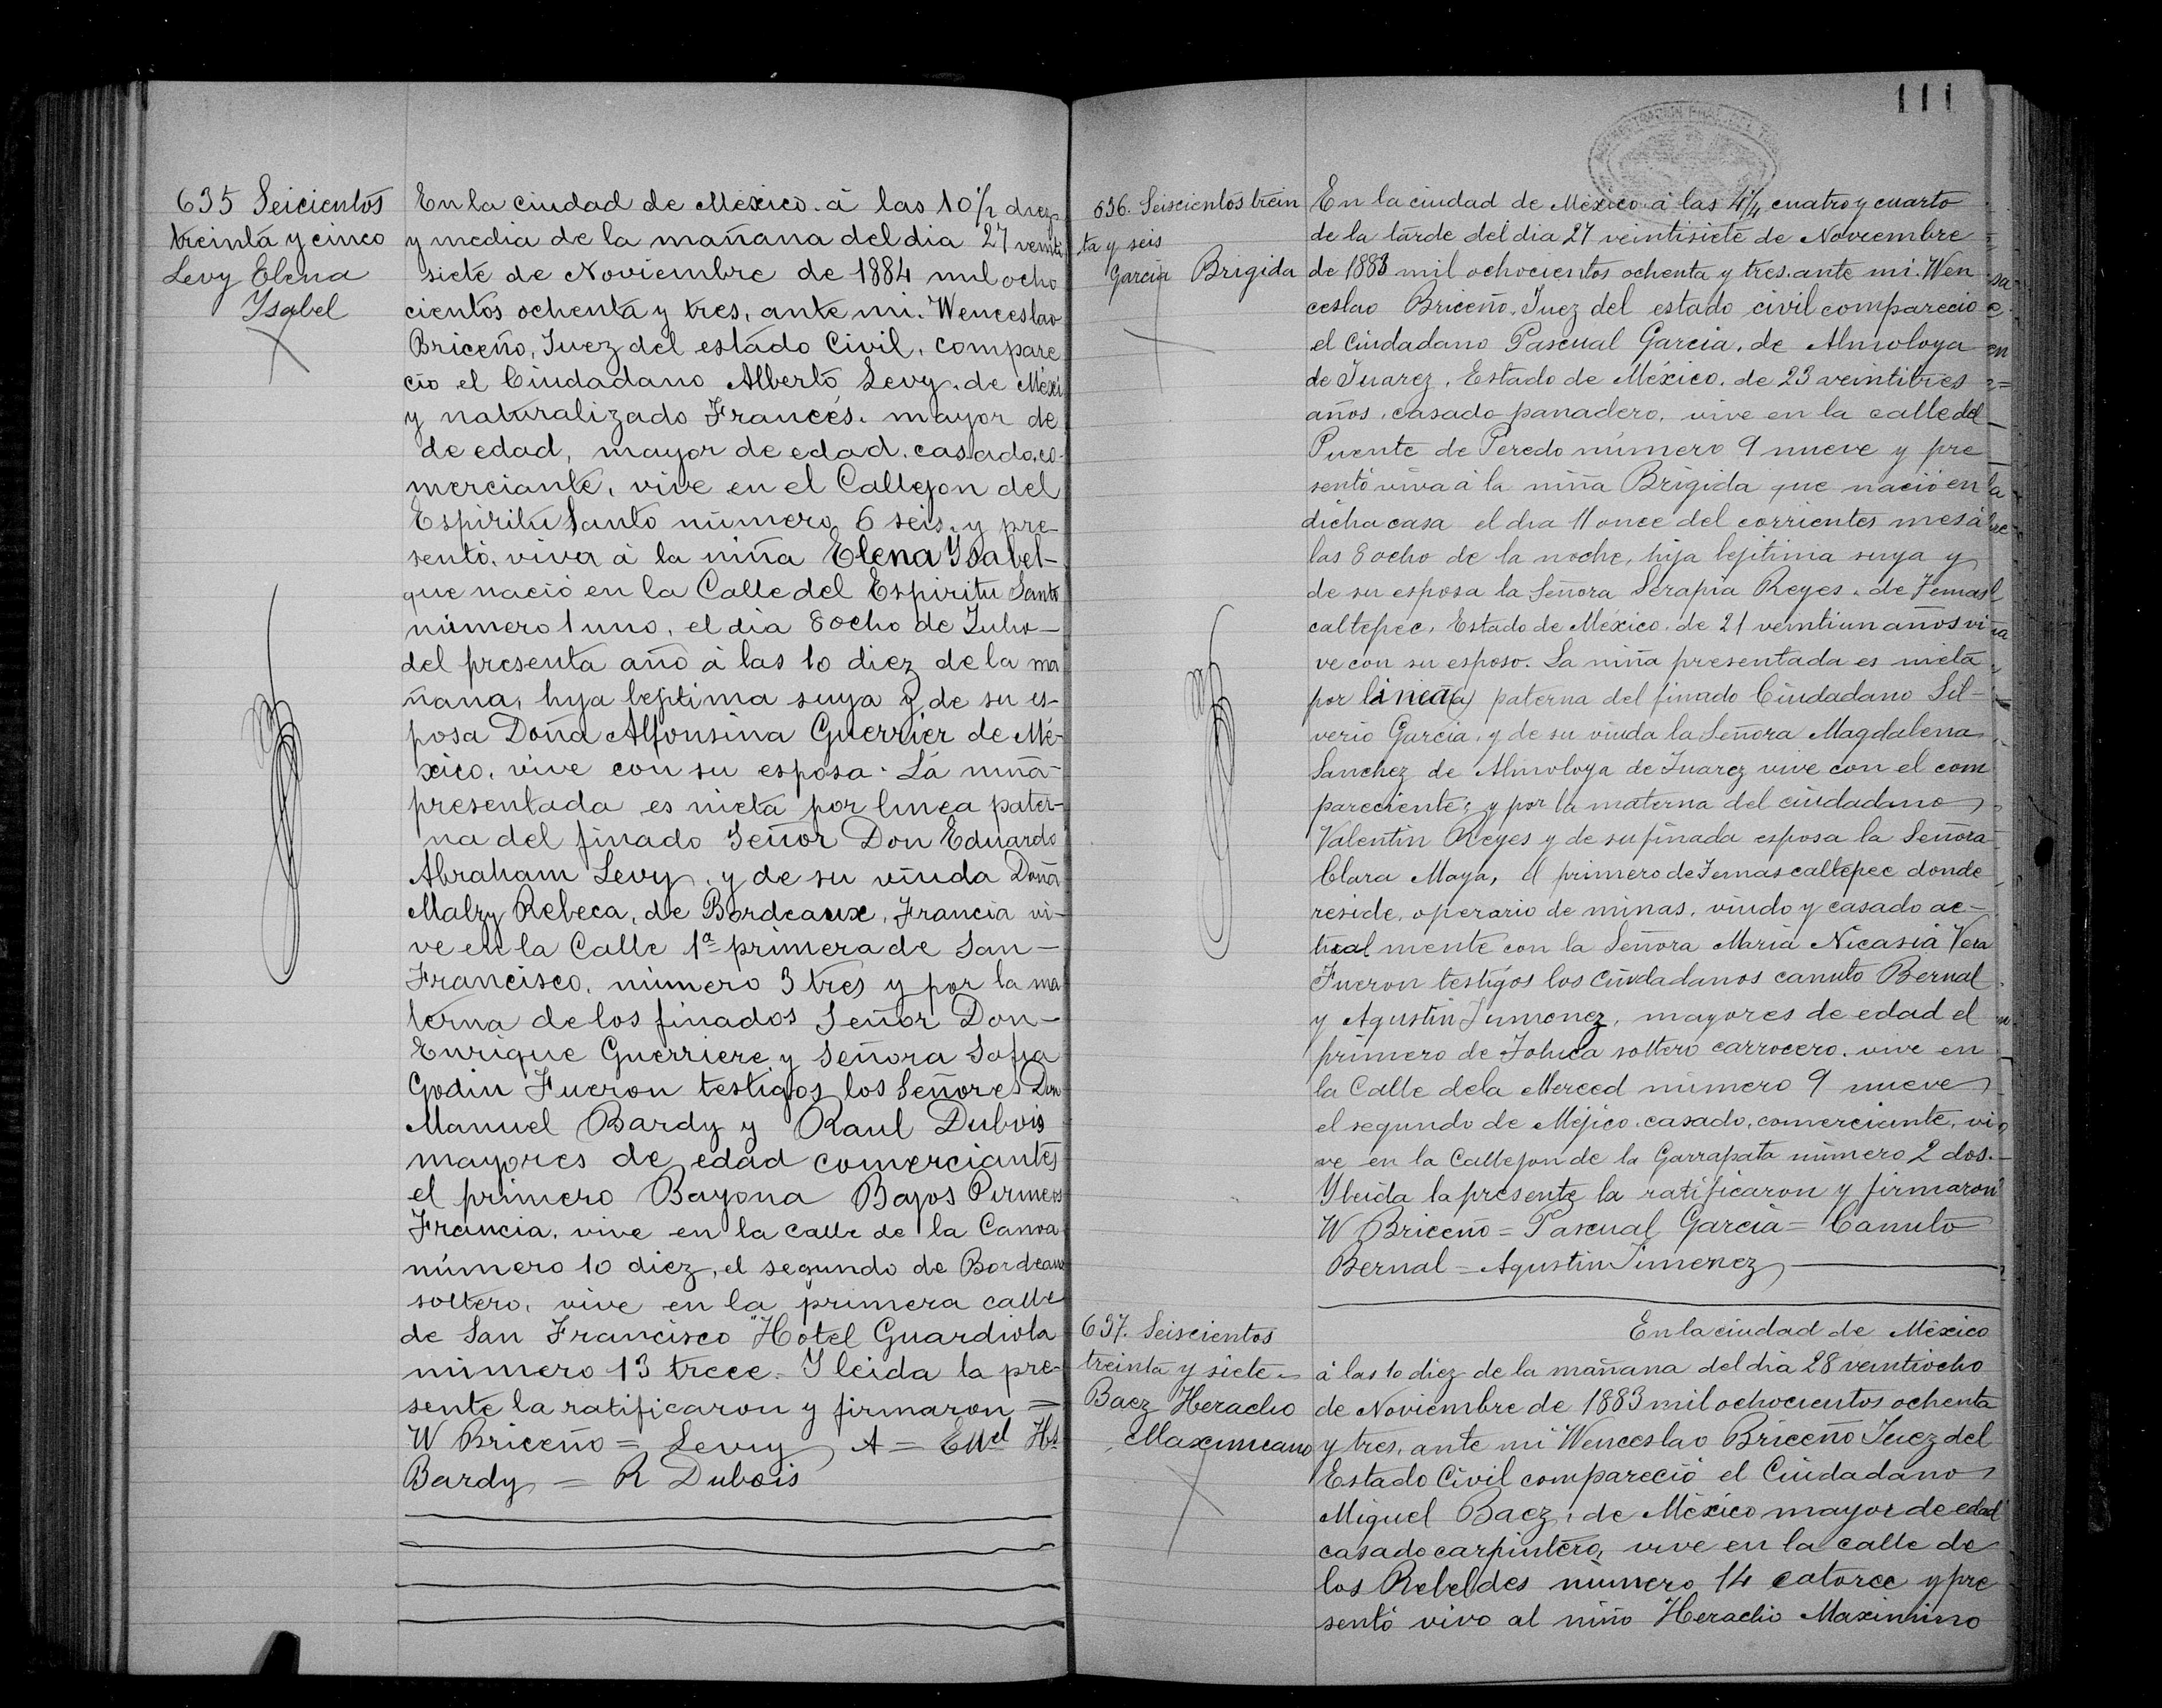 635 Seicientos
treinta y cinco
Levy Elena
Ysabel
En la ciudad de México. á las 10 1/2 diez
y media de la mañana del dia 27 venti
siete de Noviembre de 1884 mil ocho
cientos ochenta y tres, ante mi. Wenceslao
Briceño, Juez del estado Civil, compare
cio el Ciudadano Alberto Levy. de Méxi
y naturalizado Francés. mayor de
de edad, mayor de edad. casado. co-
merciante, vive en el Callejon del
Espiritu Santo número 6 seis, y pre-
sentó. viva á la niña Elena Ysabel-
que nació en la Calle del Espiritu Santo
número 1 uno, el dia 8 ocho de Julio-
del presenta año á las 10 diez de la ma
ñana, hija lejitima suya y de su es-
posa Doña Alfonsina Guerrier de Mé-
xico, vive con su esposa. La niña-
presentada es nieta por linea pater-
na del finado Señor Don Eduardo
Abraham Levy, y de su viuda Doña
Malzy Rebeca, de Bordeaux, Francia vi-
ve en la Calle 1ª primera de San-
Francisco, número 3 tres y por la ma
terna de los finados Señor Don-
Enrique Guerriere y Señora Sofia
Godin Fueron testigos los Señores Don
Manuel Bardy y Raul Dubois
mayores de edad comerciantes
el primero Bayona Bajos Pirineos
Francia, vive en la calle de la Canoa
número 10 diez, el segundo de Bordeaux
soltero, vive en la primera calle
de San Francisco "Hotel Guardiola
número 13 trece. Y leida la pre-
sente la ratificaron y firmaron =
W Briceño = Levy A = Ell
Bardy = R Dubois
111
636. Seiscientos trein
ta y seis
Garcia Brigida
En la ciudad de México á las 4 1/4 cuatro y cuarto
de la tarde del dia 27 veintisiete de Noviembre
de 1883 mil ochocientos ochenta y tres. ante mi. Wen
ceslao Briceño. Juez del estado civil comparecio
el Ciudadano Pascual Garcia. de Almoloya
de Juarez, Estado de México. de 23 veintitres
años, casado panadero, vive en la calle del
Puente de Peredo número 9 nueve y pre
sentó viva á la niña Brigida que nació en
dicha casa el dia 11 once del corrientes mes á
las 8 ocho de la noche, hija lejitima suya y
de su esposa la Señora Serapia Reyes. de Temas
caltepec, Estado de México. de 21 veintiun años vi
ve con su esposo. La niña presentada es nieta
por linea(a) paterna del finado Ciudadano Sil-
verio Garcia, y de su viuda la Señora Magdalena
Sanchez de Almoloya de Juarez vive con el com
pareciente; y por la materna del ciudadano
Valentin Reyes y de su finada esposa la Señora
Clara Maya, el primero de Temascaltepec donde
reside, operario de minas, viudo y casado ac-
tual mente con la Señora Maria Nicasia Vera
Fueron testigos los Ciudadanos canuto Bernal
y Agustin Jimenez, mayores de edad el
primero de Toluca soltero carrocero. vive en
la Calle dela Merced número 9 nueve
el segundo de Méjico. casado, comerciante, vi
ve en la Callejon de la Garrapata número 2 dos.
Y leida la presente la ratificaron y firmaron
W Briceño = Pascual Garcia = Canuto
Bernal = Agustin Jimenez
637. Seiscientos
treinta y siete
Baez Heraclio
Maximeano
En la ciudad de México
á las 10 diez de la mañana del dia 28 ventiocho
de Noviembre de 1883 mil ochocientos ochenta
y tres, ante mi Wenceslao Briceño Juez del
Estado Civil compareció el Ciudadano
Miguel Baez, de México mayor de edad
casado carpintero, vive en la calle de
los Rebeldes número 14 catorce y pre
sentó vivo al niño Heraclio Maximino